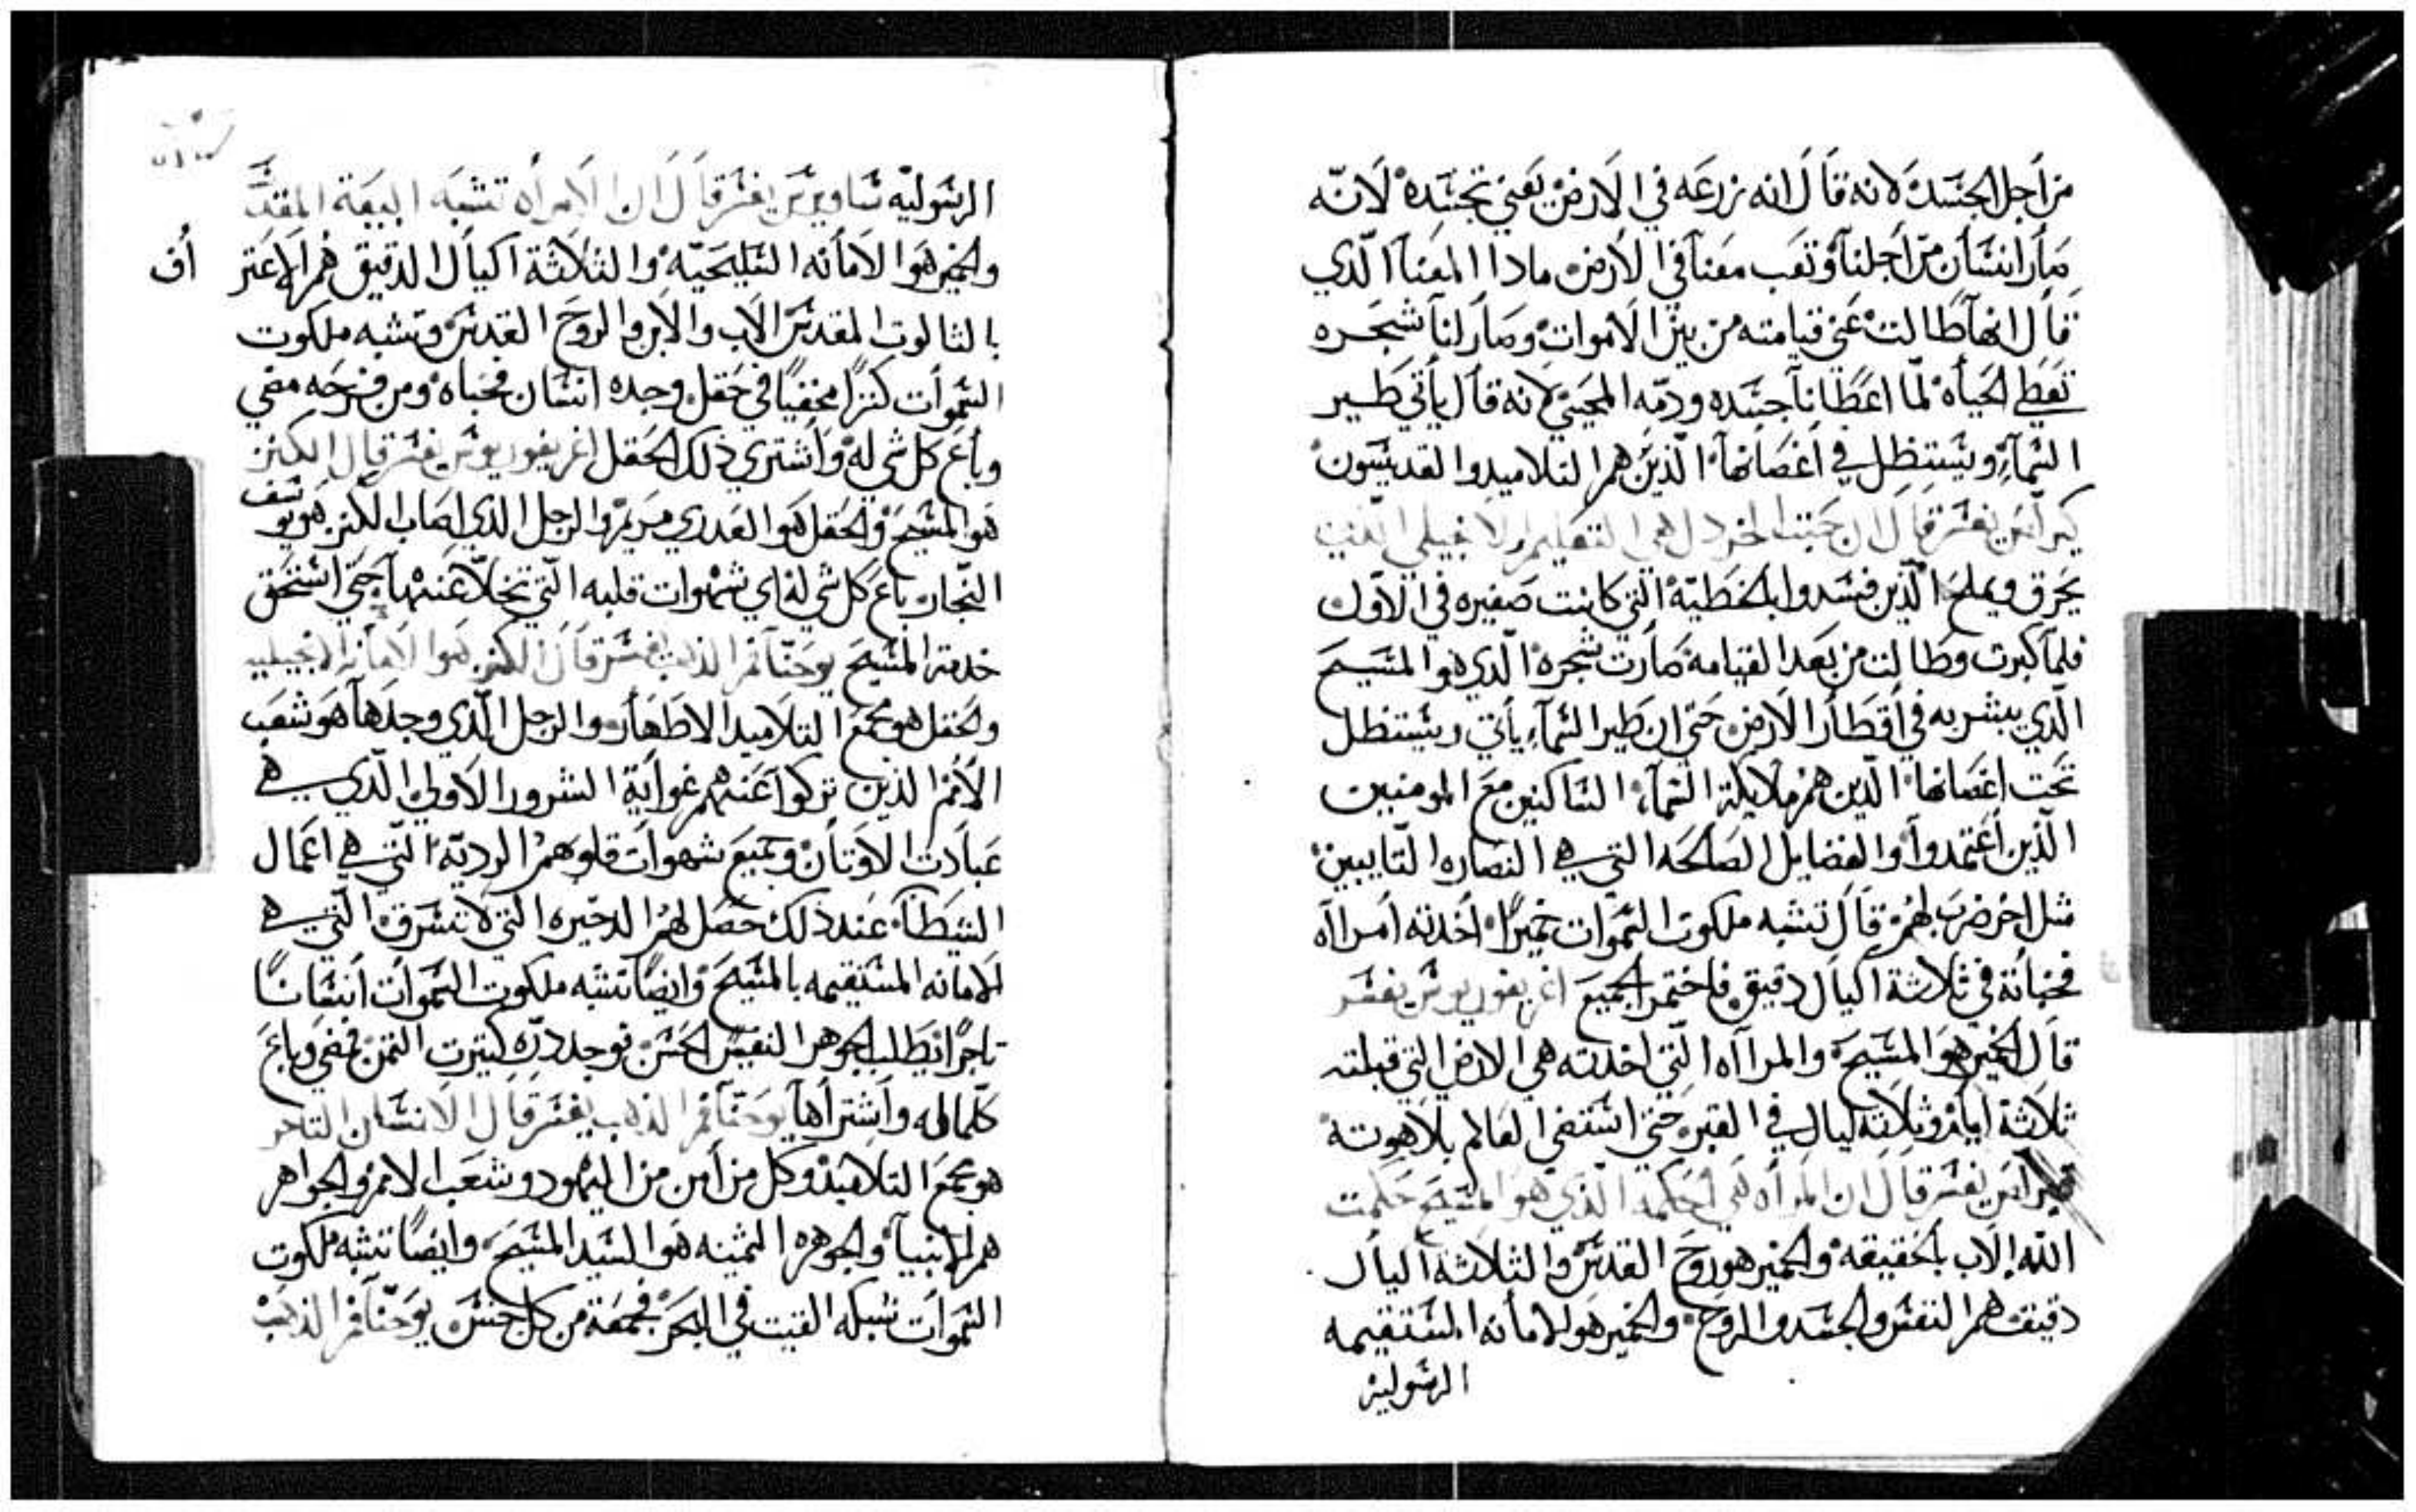 من اجل الجسد لانه قال انه زرعه في الارض يعني تجسده لانه
صار انسان من اجلنا وتعب معنا في الارض ماذا المعنا الذي
قال انها طالت عني قيامته من بين الاموات وصار لنا شجره
تعطي الحياه لما اعطانا جسده ودمه المحيي لانه قال ياتي طير
السماء ويستظل في اغصانها الذين هم التلاميد والقديسون
كيرلس يفسر قال ان حبت الخردل هي التعليم الانجيلي الذي
يحرق ويملح الذين فسدوا بالخطية التي كانت صغيره في الاول
فلما كبرت وطالت من بعد القيامه صارت شجره الذي هو المسيح
الذي يبشر به في اقطار الارض حتى ان طير السماء ياتي ويستظل
تحت اغصانها الذين هم ملايكة السماء الساكنين مع المومنين
الذين اعتمدوا والفضايل الصالحه التي هي النصاره التايبين
مثل اخر ضرب لهم قال تشبه ملكوت السموات خميرا اخدته امراه
فخباته في ثلاثة اكيال دقيق فاختمر الجميع اغريغوريوس يفسر
قال الخمير هو المسيح والمرااه التي اخدته هي الارض التي قبلته
ثلاثة ايام وثلاثة ليال في القبر حتى استضى العالم بلاهوته
كيرلس يفسر قال ان المراه هي الحكمه الذي هو المسيح حكمت
الله الاب بالحقيقه والخمير هو روح القدس والثلاثة اكيال
دقيق هم النفس والجسد والروح والخمير هو الامانه المستقيمه
الرسوليه
الرسوليه ساويرس يفسر قال ان الامراه تشبه البيعة المقدسة
والخمير هوا الامانه المسيحيه والثلاثة اكيال الدقيق هم الاعتراف
بالثالوت المقدس الاب والابن والروح القدس وتشبه ملكوت
السموات كنزا مخفيا في حقل وجده انسان فخباه ومن فرحه مضي
وباع كل شي له واشتري ذلك الحقل اغريغوريوس يفسر قال الكنز
هو المسيح والحقل هو العدري مريم والرجل الذي اصاب الكنز هو يوسف
النجار باع كل شي له اي شهوات قلبه التي تخلا عنها حتي استحق
خدمة المسيح يوحنا فم الذهب يفسر قال ان الكنز هوا الامانه الانجيليه
والحقل هو مجمع التلاميد الاطهار والرجل الذي وجدها هو شعب
الامم الذين تركوا عنهم غواية الشرور الاولي الذي هي
عبادت الاوتان وجميع شهوات قلوبهم الرديه التي هي اعمال
الشطا عند ذلك حصل لهم الدخيره التي لا تسرق التي هي
الامانه المستقيمه بالمسيح وايضا تشبه ملكوت السموات انسانا
تاجرا يطلب الجوهر النفيس الحسن فوجد دره كثيرت الثمن فمضي وباع
كلما له واشتراها يوحنا فم الذهب يفسر قال الانسان التاجر
هو مجمع التلاميذ وكل من امن من اليهود وشعب الامم والجواهر
هم الانبياء والجوهره الثمينه هو السيد المسيح وايضا تشبه ملكوت
السموات شبكه القيت في البحر فجمعة من كل جنس يوحنا فم الذهب